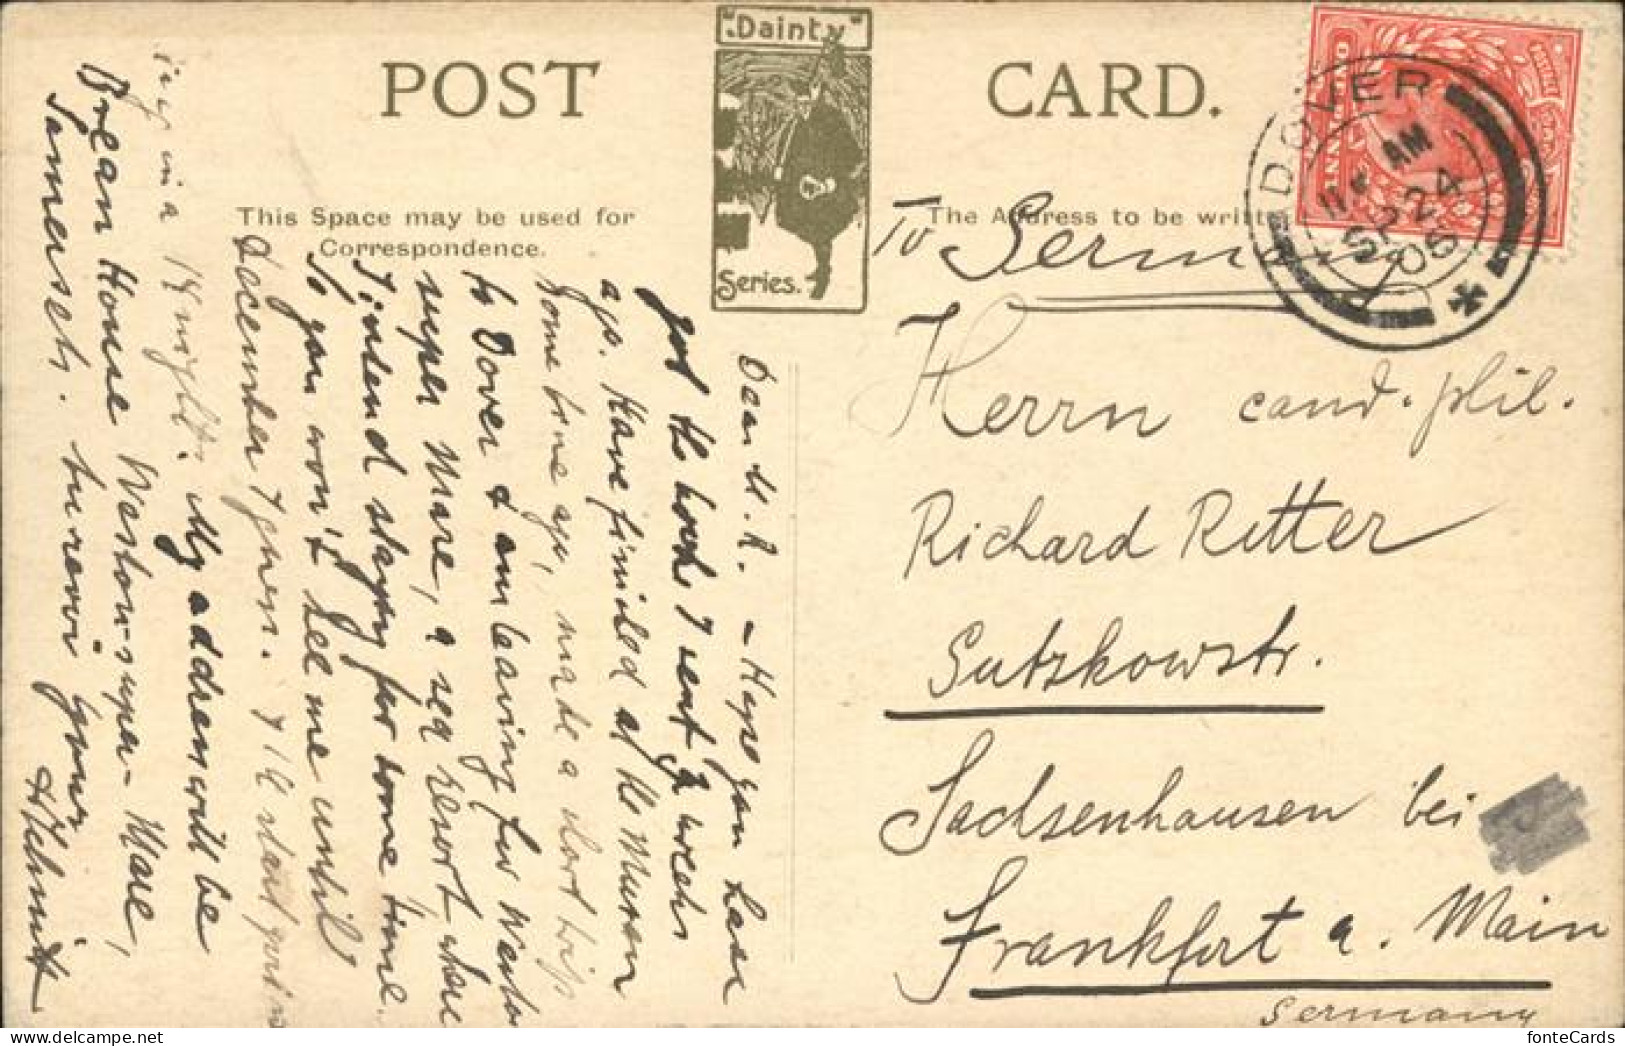 "Dainty"
Series.
POST CARD.
This Space may be used for
Correspondence.
The Address to be writte
DOVER
11 AM
SP 24
06
To Germany
Herrn cand. phil.
Richard Ritter
Gutzkowstr.
Sachsenhausen bei
Frankfurt a. Main
Germany
Dear M. R. – Hope you have
got the books I sent weeks
ago. Have finished at the Museum
some time ago, made a short trip
to Dover & am leaving for Weston
super Mare, a sea resort where
I intend staying for some time.
So you won't see me until
December I guess. I'll start
in a My address will be
Brean House Weston-super-Mare,
Somerset. yours
HHelmuth
fonteCards